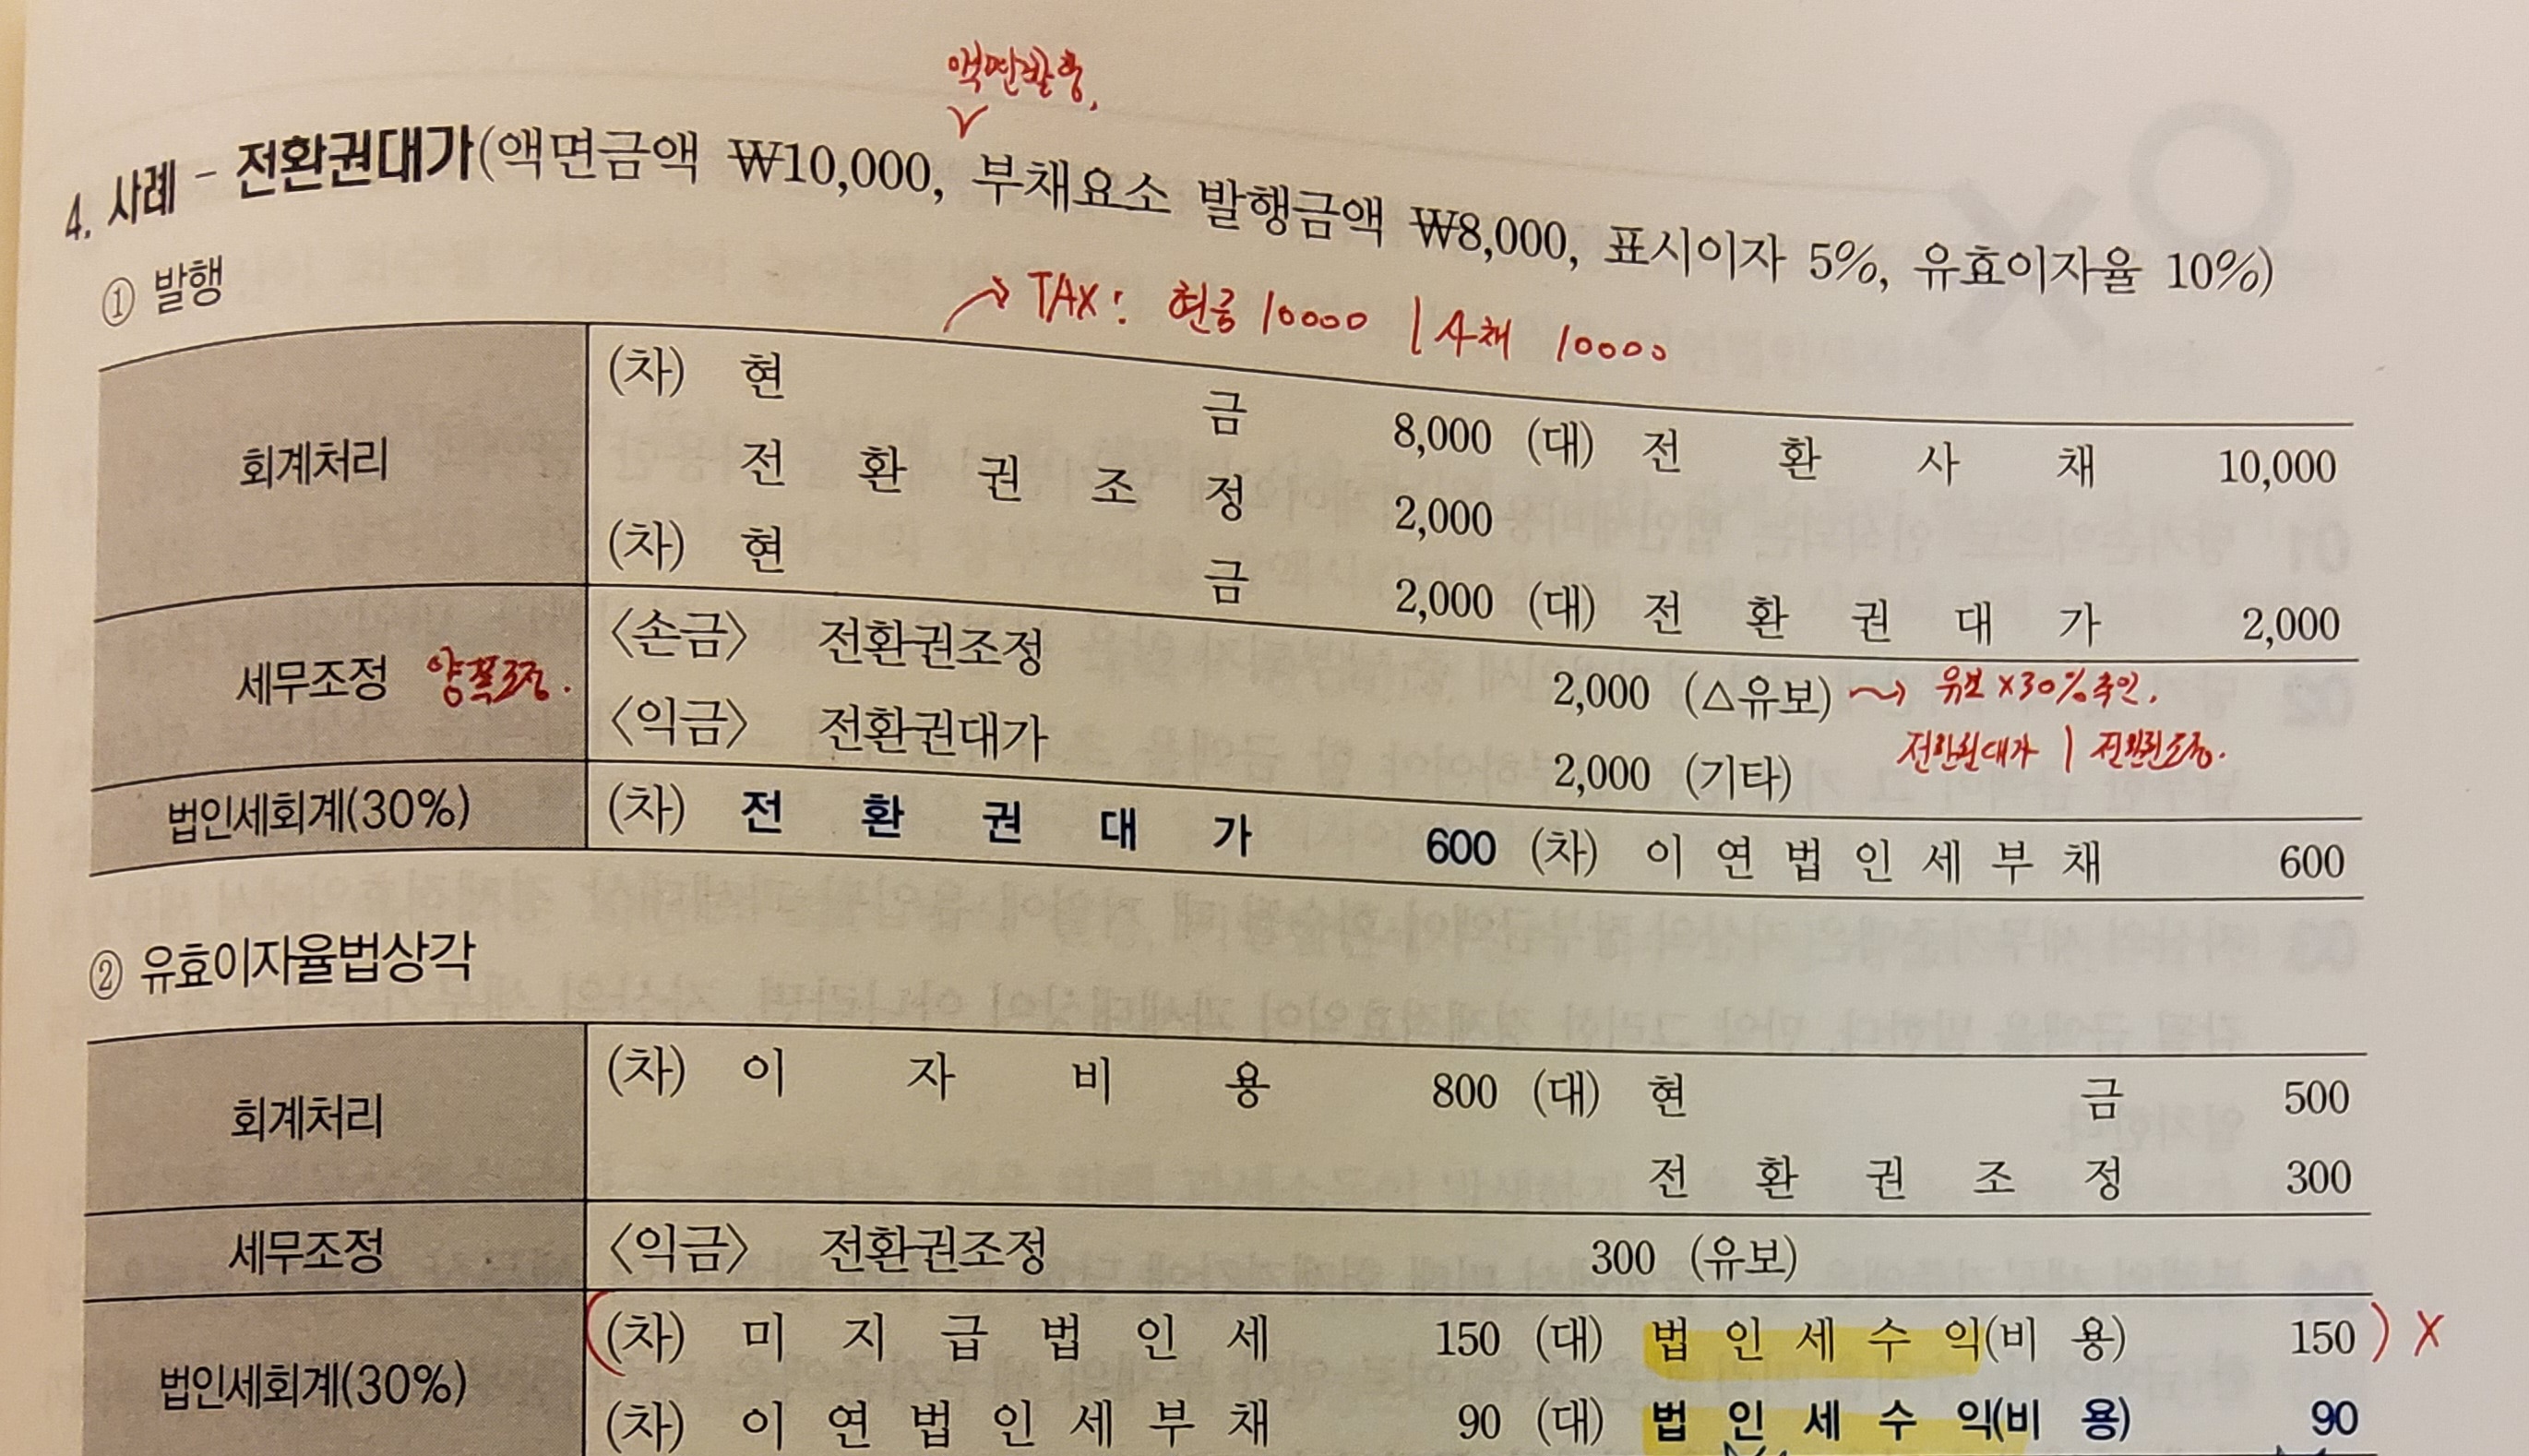 액면발행.
4. 사례 - 전환권대가(액면금액 ₩10,000, 부채요소 발행금액 ₩8,000, 표시이자 5%, 유효이자율 10%)
① 발행
→ TAX: 현금 10000 | 사채 10000
회계처리
(차) 현 금 8,000 (대) 전 환 사 채 10,000
전 환 권 조 정 2,000
(차) 현 금 2,000 (대) 전 환 권 대 가 2,000
세무조정 양쪽조정.
〈손금〉 전환권조정 2,000 (△유보) → 유보×30% 추인.
〈익금〉 전환권대가 2,000 (기타) 전환권대가 | 전환권조정.
법인세회계(30%) (차) 전 환 권 대 가 600 (차) 이 연 법 인 세 부 채 600
② 유효이자율법상각
회계처리
(차) 이 자 비 용 800 (대) 현 금 500
전 환 권 조 정 300
세무조정 〈익금〉 전환권조정 300 (유보)
법인세회계(30%)
(차) 미 지 급 법 인 세 150 (대) 법 인 세 수 익(비 용) 150 ) X
(차) 이 연 법 인 세 부 채 90 (대) 법 인 세 수 익(비 용) 90